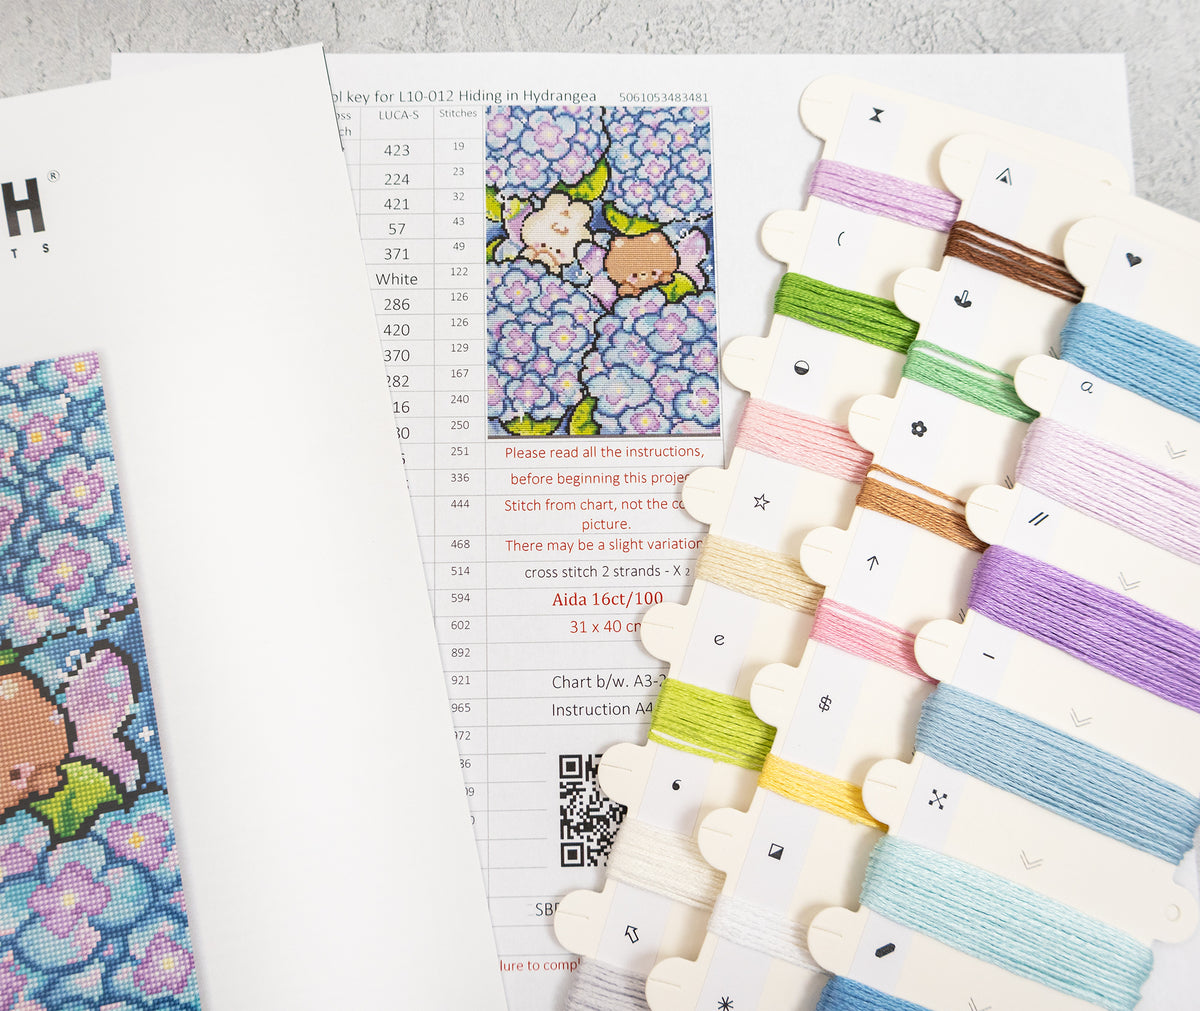 H®
T S
ol key for L10-012 Hiding in Hydrangea 5061053483481
oss LUCA-S Stitches
ch
423 19
224 23
421 32
57 43
371 49
White 122
286 126
420 126
370 129
282 167
16 240
30 250
251 Please read all the instructions,
336 before beginning this projec
444 Stitch from chart, not the co
picture.
468 There may be a slight variation
514 cross stitch 2 strands - X 2
594 Aida 16ct/100
602 31 x 40 cm
892
921 Chart b/w. A3-2
965 Instruction A4
972
36
09
0
SBF
lure to compl
( 
a
e
$